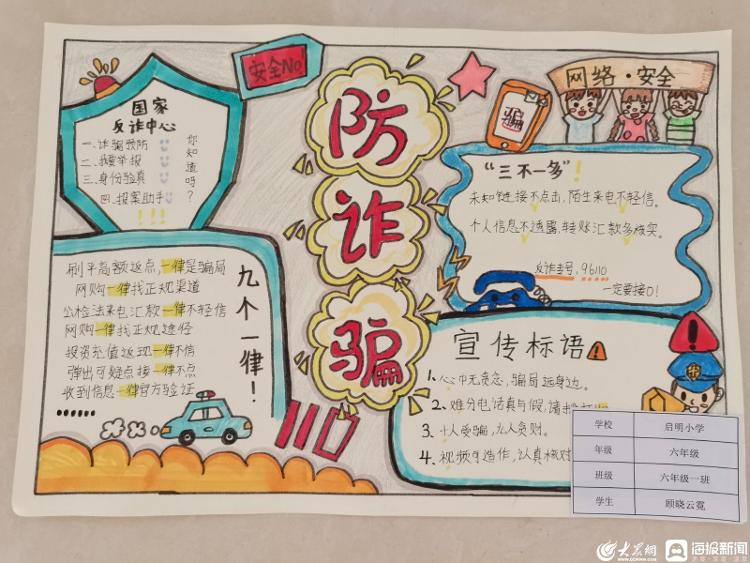 安全No
防诈骗
国家
反诈中心
一.诈骗预防
二.我要举报
三.身份验真
四.报案助手
!!!
你知道吗?
骗
网络·安全
"三不一多"!
未知链接不点击,陌生来电不轻信。
个人信息不透露,转账汇款多核实。
反诈专号,96110
一定要接O!
九个一律!
刷平高额返点,一律是骗局
网购一律找正规渠道
公检法来电汇款一律不轻信
网购一律找正规途径
投资充值返现一律不信
弹出可疑点接一律不点
收到信息一律官方验证
••••••
110
宣传标语
1、心中无贪念,骗局远身边。
2、难分电话真与假,请
3、十人受骗,九人贪财。
4、视频可造作,认真核对
学校 启明小学
年级 六年级
班级 六年级一班
学生 顾晓云霓
大众网
海报新闻